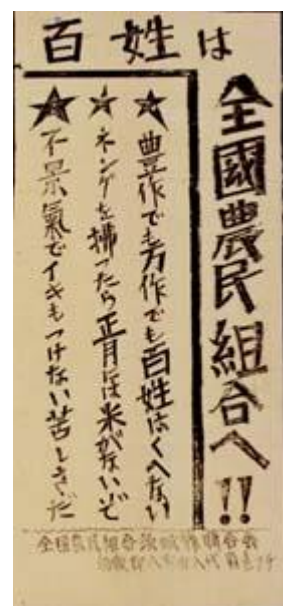 百姓は
全國農民組合へ!!
★豊作でも凶作でも百姓はくへない
★ネングを拂ったら正月は米がないぞ
★不景氣でイキもつけない苦しさだ
全国農民組合茨城縣聯合会